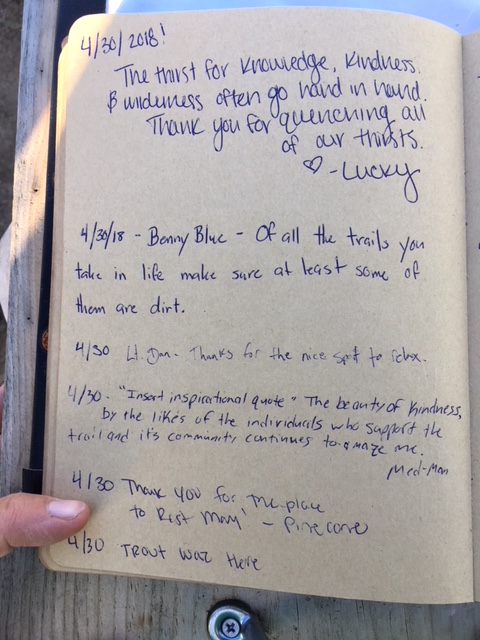 4/30/2018!
The thirst for knowledge, kindness.
& wilderness often go hand in hand.
Thank you for quenching all
of our thirsts.
♡ - Lucky
4/30/18 - Benny Blue - Of all the trails you
take in life make sure at least some of
them are dirt.
4/30 Lt. Dan - Thanks for the nice spot to relax.
4/30 - "Insert inspirational quote" The beauty of kindness,
by the likes of the individuals who support the
trail and it's community continues to amaze me.
Med-Man
4/30 Thank you for the place
to Rest - Pinecone
4/30 Trout waz Here